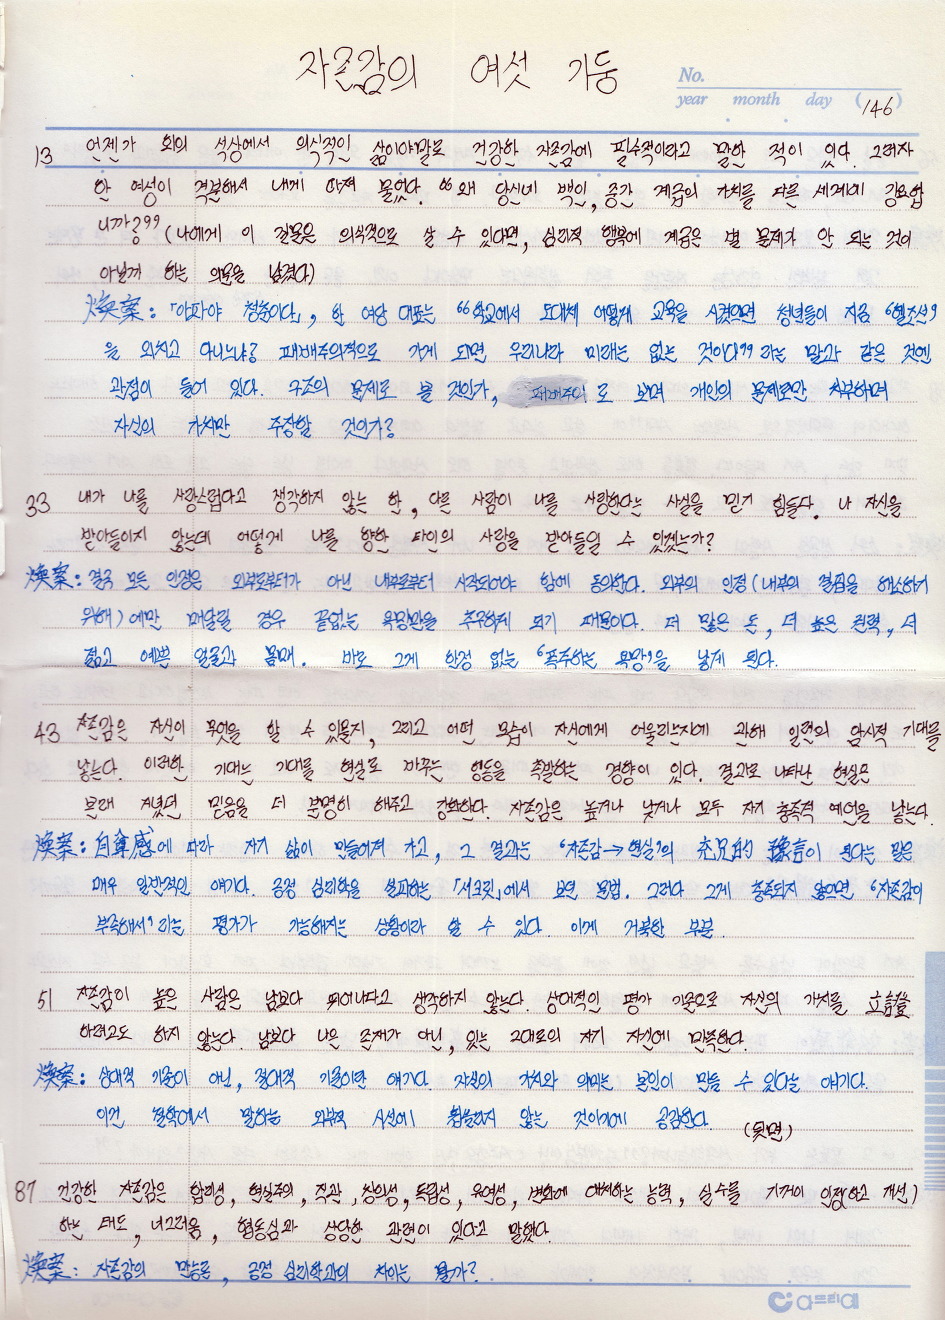 자존감의 여섯 기둥
No.
year month day (146)
13 언젠가 회의 석상에서 의식적인 삶이야말로 건강한 자존감에 필수적이라고 말한 적이 있다. 그러자
한 여성이 격분해서 내게 따져 물었다. "왜 당신네 백인, 중간 계급의 가치를 다른 세계에 강요합
니까?" (나에게 이 질문은 의식적으로 살 수 있다면, 심리적 행복에 계급은 별 문제가 안 되는 것이
아닐까 하는 의문을 남겼다)
煥案: 「아파야 청춘이다」, 한 여당 대표는 "학교에서 도대체 어떻게 교육을 시켰으면 청년들이 지금 '헬조선'
을 외치고 다니느냐? 패배주의적으로 가게 되면 우리나라 미래는 없는 것이다" 라는 말과 같은 것엔
관점이 들어 있다. 구조의 문제로 볼 것인가, 패배주의로 보며 개인의 문제로만 치부하며
자신의 가치만 주장할 것인가?
33 내가 나를 사랑스럽다고 생각하지 않는 한, 다른 사람이 나를 사랑한다는 사실을 믿기 힘들다. 나 자신을
받아들이지 않는데 어떻게 나를 향한 타인의 사랑을 받아들일 수 있겠는가?
煥案: 결국 모든 인정은 외부로부터가 아닌 내부로부터 시작되어야 함에 동의한다. 외부의 인정(내부의 결핍을 해소하기
위해)에만 매달릴 경우 끝없는 욕망만을 추구하게 되기 때문이다. 더 많은 돈, 더 높은 권력, 더
젊고 예쁜 얼굴과 몸매. 바로 그게 한정 없는 '폭주하는 욕망'을 낳게 된다.
43 자존감은 자신이 무엇을 할 수 있을지, 그리고 어떤 모습이 자신에게 어울리는지에 관해 일련의 암시적 기대를
낳는다. 이러한 기대는 기대를 현실로 바꾸는 행동을 촉발하는 경향이 있다. 결과로 나타난 현실은
본래 지녔던 믿음을 더 분명히 해주고 강화한다. 자존감은 높거나 낮거나 모두 자기 충족적 예언을 낳는다.
煥案: 自尊感에 따라 자기 삶이 만들어져 가고, 그 결과는 '자존감→현실'의 充足的 豫言이 된다는 말은
매우 일반적인 얘기다. 긍정 심리학을 설파하는 「시크릿」에서 보던 문법. 그러다 그게 충족되지 않으면 '자존감이
부족해서'라는 평가가 가능해지는 상황이라 할 수 있다. 이게 거북한 부분.
51 자존감이 높은 사람은 남보다 뛰어나다고 생각하지 않는다. 상대적인 평가 기준으로 자신의 가치를 立證을
하려고도 하지 않는다. 남보다 나은 존재가 아닌, 있는 그대로의 자기 자신에 만족한다.
煥案: 상대적 기준이 아닌, 절대적 기준이란 얘기다. 자신의 가치와 의미는 본인이 만들 수 있다는 얘기다.
이건 철학에서 말하는 외부적 시선에 휘둘리지 않는 것이기에 공감한다.
(뒷면)
87 건강한 자존감은 합리성, 현실주의, 직관, 창의성, 독립성, 유연성, 변화에 대처하는 능력, 실수를 기꺼이 인정(하고 개선)
하는 태도, 너그러움, 협동심과 상당한 관련이 있다고 말했다.
煥案: 자존감의 만능론, 긍정 심리학과의 차이는 뭘까?
아트라에